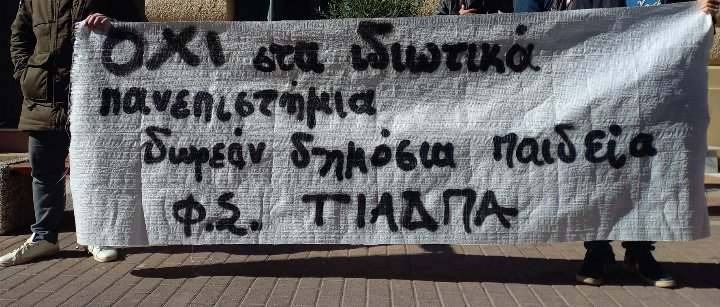 ΟΧΙ στα ιδιωτικά
πανεπιστήμια
δωρεάν δημόσια παιδεία
Φ.Σ. ΤΙΑΔΠΑ